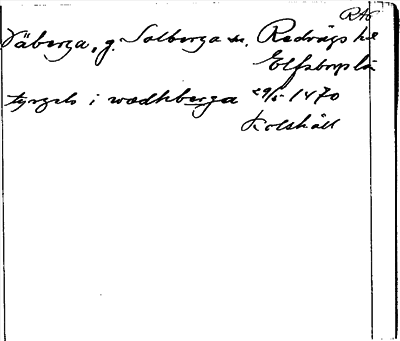 RAÖ
Väberga, g. Solberga sn, Redvägs hd
Elfsborgs län
tyrgels i wædhberga 29/5 1470
Kolshäll